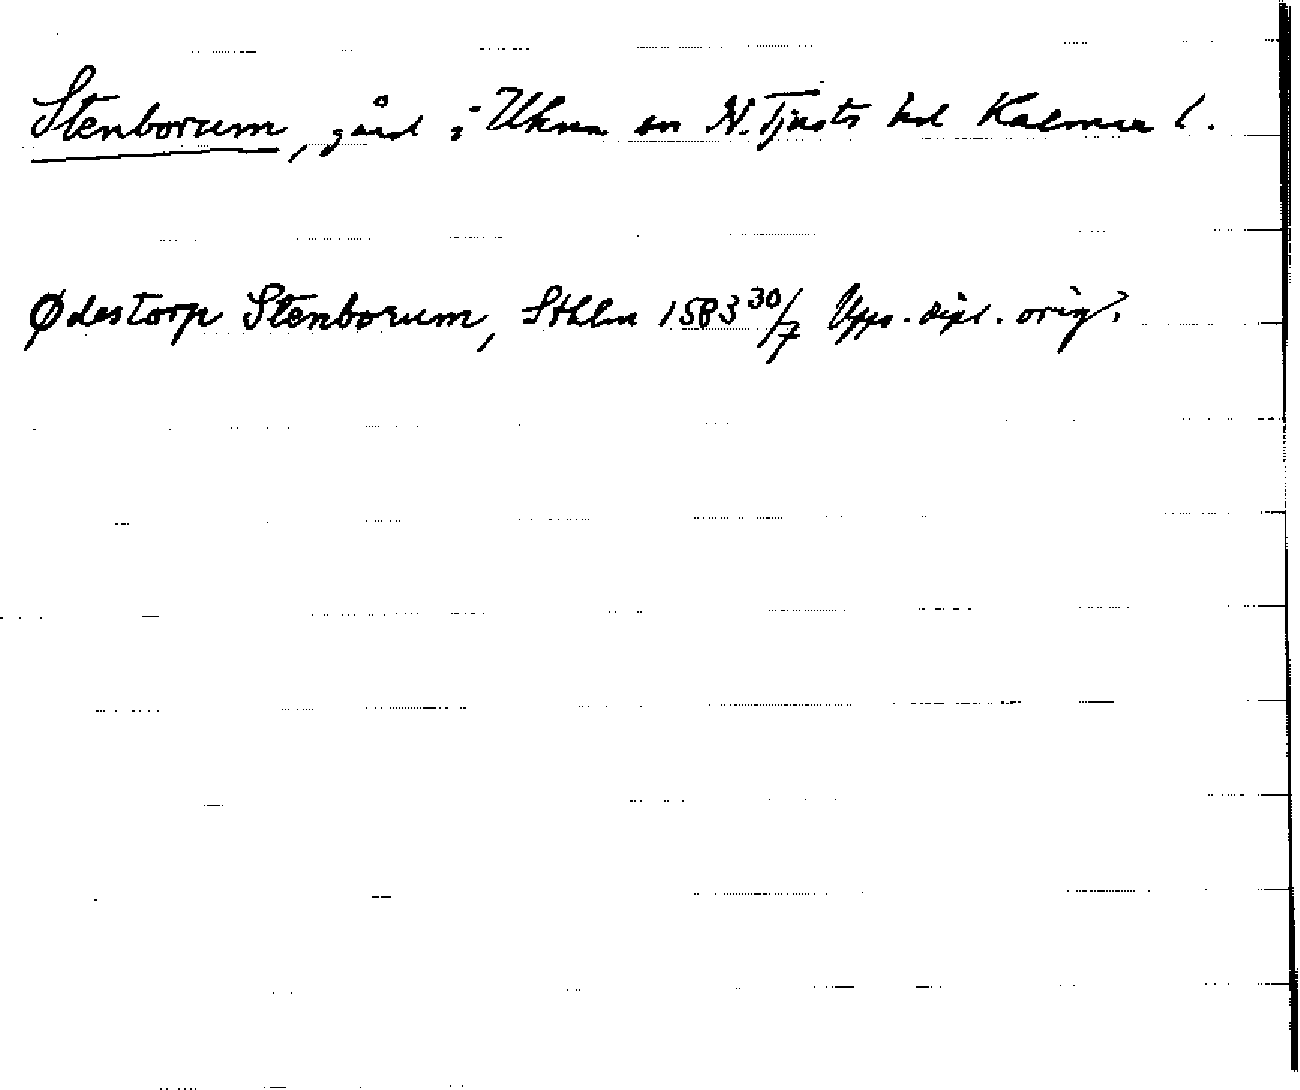 Stenborum, gård i Ukna sn N. Tjusts hd Kalmar l.
Ødestorp Stenborum, Sthlm 1583 30/7 Upps. dipl. orig.